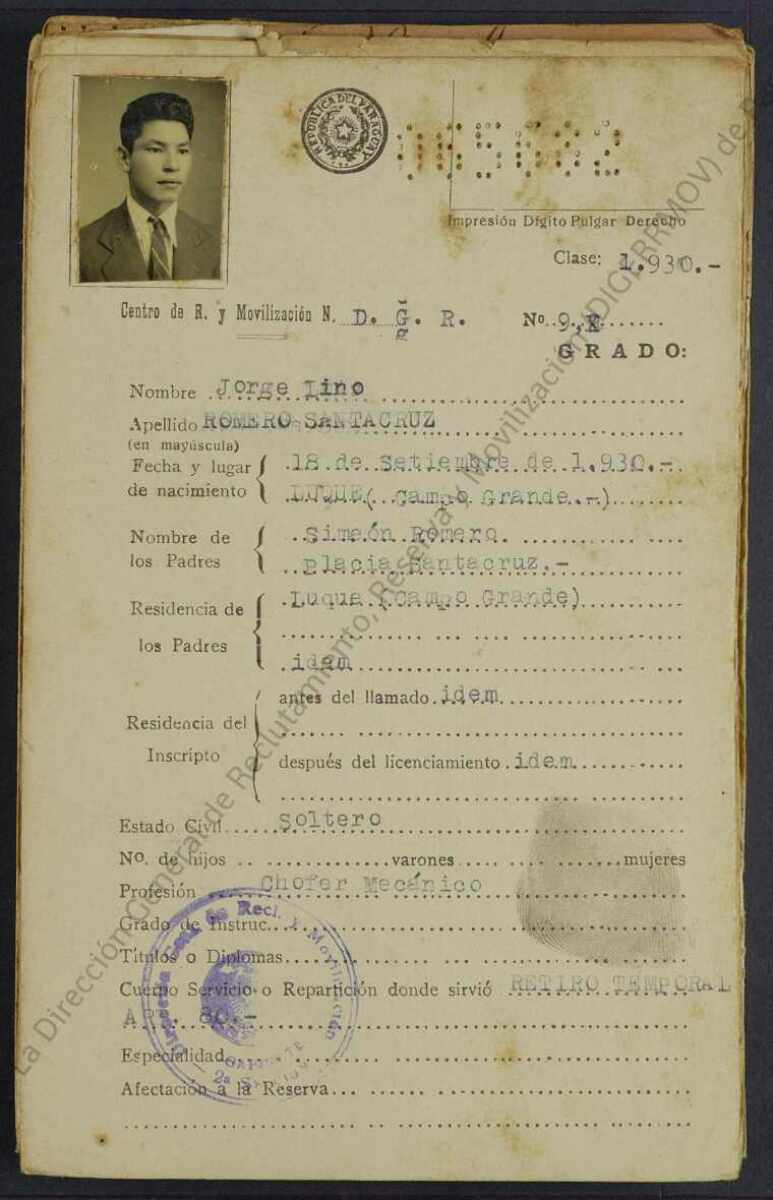 REPUBLICA DEL PARAGUAY
Impresión Dígito Pulgar Derecho
Clase: 1.930.-
Centro de R. y Movilización N. D. G. R.
Nº. 9,
GRADO:
Nombre Jorge Lino
Apellido ROMERO SANTACRUZ
(en mayúscula)
Fecha y lugar de nacimiento 18 de Setiembre de 1.930.-
LUQUE ( Campo Grande.-)
Nombre de los Padres Simeón Romero
placia Santacruz.-
Residencia de los Padres Luque (Campo Grande)
idem
Residencia del Inscripto
antes del llamado idem
después del licenciamiento idem
Estado Civil Soltero
Nº. de hijos varones mujeres
Profesión Chofer Mecánico
Grado de Instruc.
Títulos o Diplomas
Cuerpo Servicio o Repartición donde sirvió RETIRO TEMPORAL
80.-
Especialidad
Afectación a la Reserva
Gral. de Recl. y Movilización
2ª
La Dirección General de Reclutamiento, Reserva y Movilización (DIGERRMOV) de